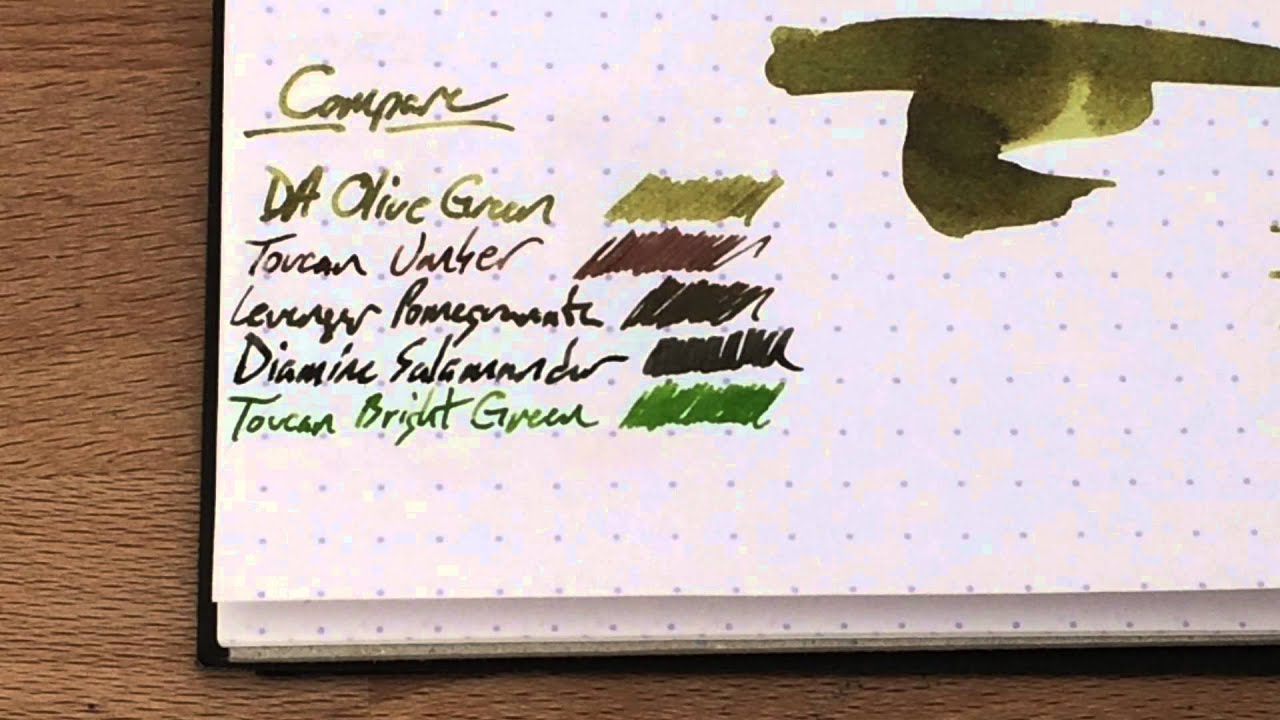 Compare
DA Olive Green
Toucan Umber
Levenger Pomegranate
Diamine Salamander
Toucan Bright Green